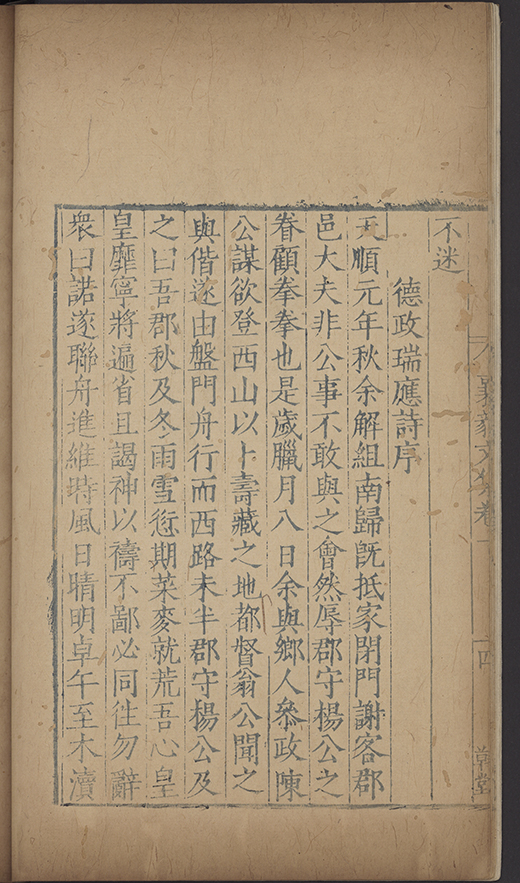 不迷
德政瑞應詩序
天順元年秋余解組南歸旣抵家閉門謝客郡
邑大夫非公事不敢與之會然辱郡守楊公之
眷顧拳拳也是歲臘月八日余與鄉人叅政陳
公謀欲登西山以卜壽藏之地都督翁公聞之
與偕遂由盤門舟行而西路未半郡守楊公及
之曰吾郡秋及冬雨雪愆期菜麥就荒吾心皇
皇靡寧將遍省且謁神以禱不鄙必同往勿辭
衆曰諾遂聯舟進維時風日晴明卓午至木瀆